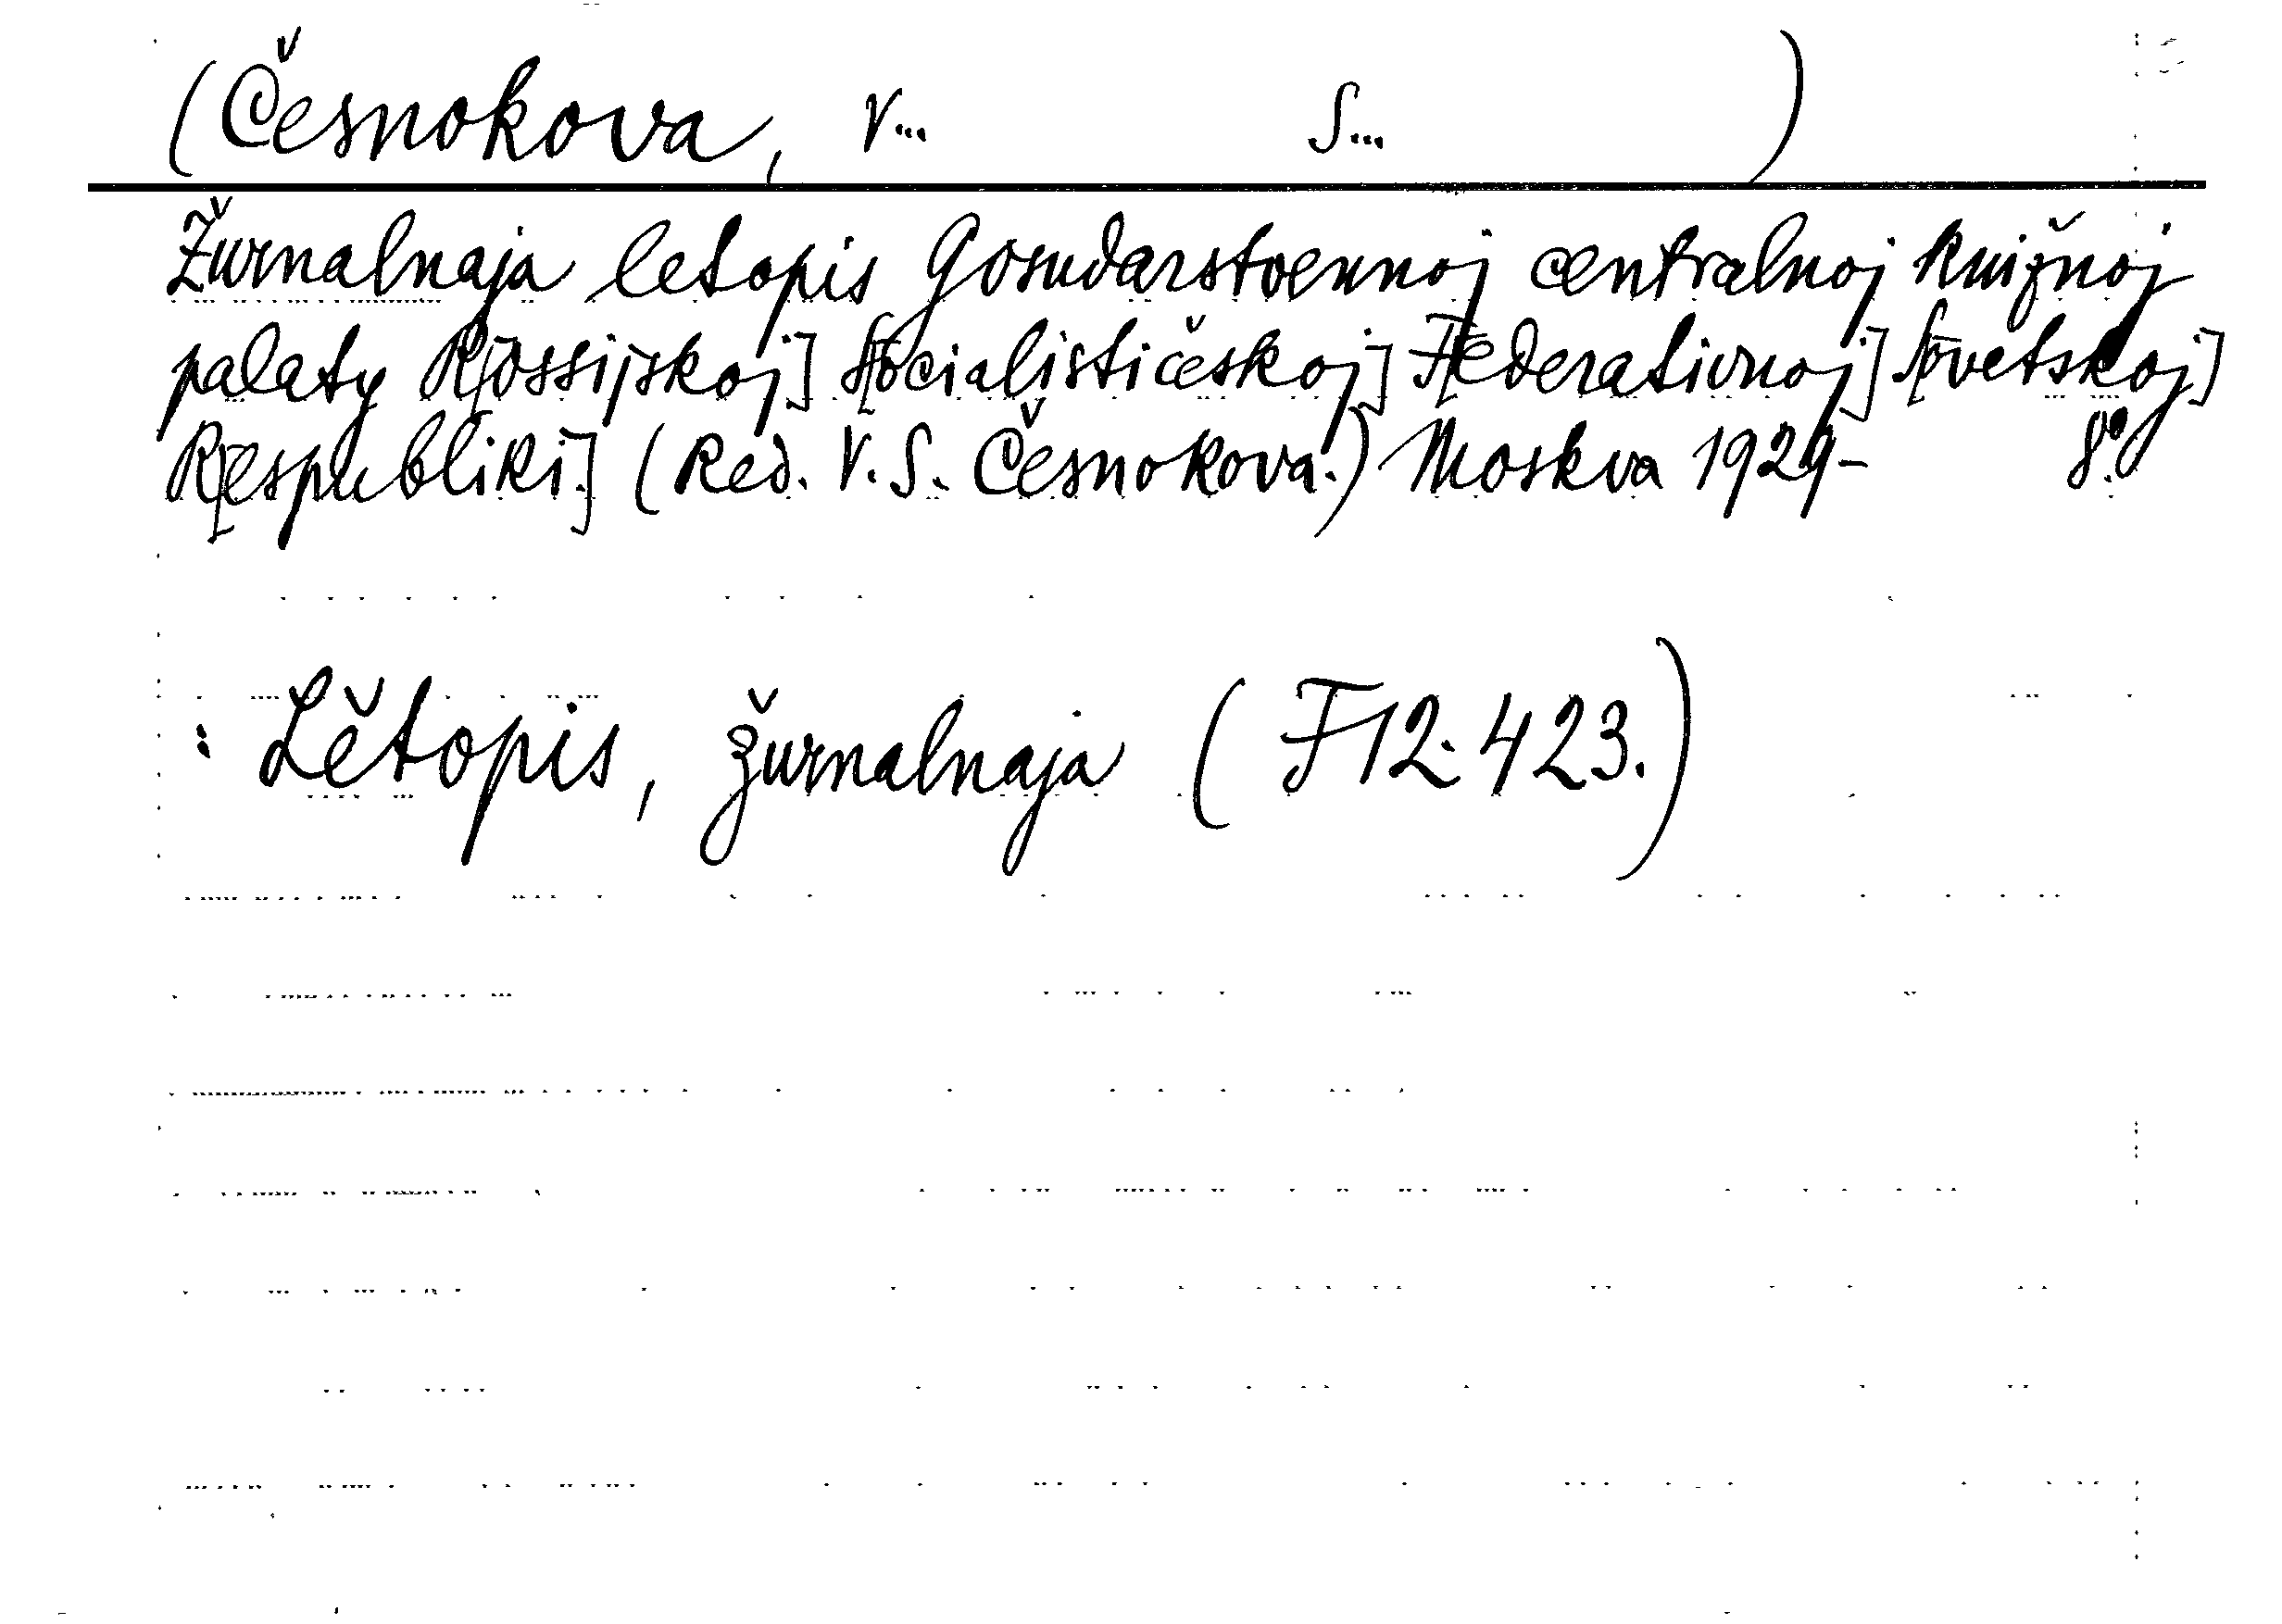 (Česnokova, V... S... )
Žurnalnaja letopis Gosudarstvennoj centralnoj knižnoj
palaty R[ossijskoj] S[ocialističeskoj] F[ederativnoj] S[ovetskoj]
R[espubliki.] (Red. V. S. Česnokova.) Moskva 1929- 8:o
: Lětopis, žurnalnaja (F12. 423.)